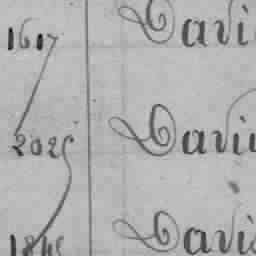 1617 Davi
2025 Davi
1845 Davis